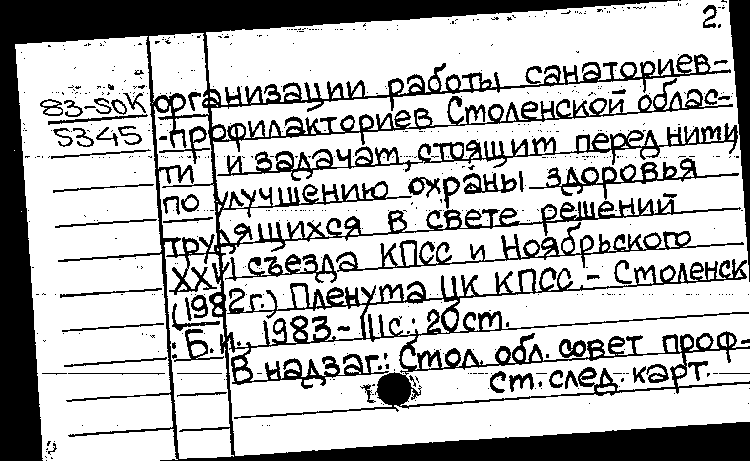 2.
83-SOK организации работы санаториев-
5345 -профилакториев Смоленской облас-
ти и задачам, стоящим перед ними
по улучшению охраны здоровья
трудящихся в свете решений
XXVI съезда КПСС и Ноябрьского
(1982г.) Пленума ЦК КПСС.- Смоленск
: Б.и., 1983.- 111с.; 20см.
В надзаг.: Смол. обл. совет проф-
см. след. карт.